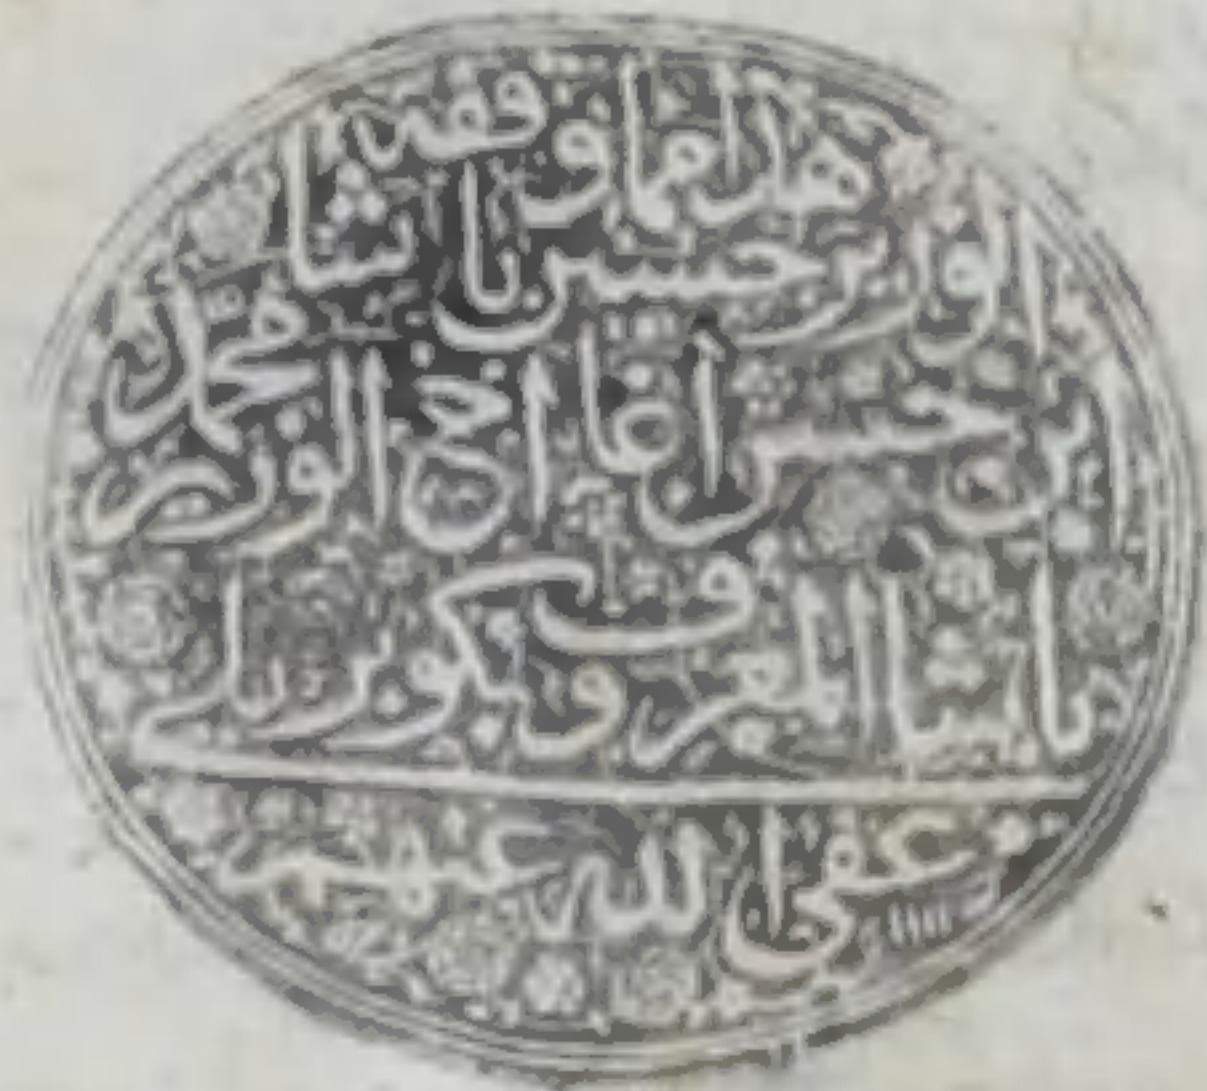 هذا مما وقفه
الوزير حسين باشا
ابن حسن آغا اخ الوزير محمد
باشا المعروف بكوبريلي
عفى الله عنهم